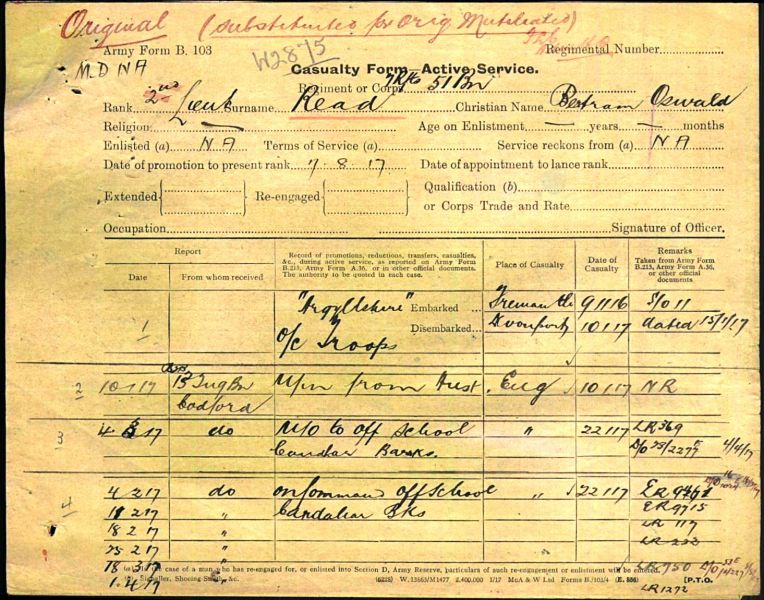 Original (substituted for Orig. Mutilated)
Army Form B. 103
W2875
Regimental Number
M.D NA
Casualty Form—Active Service.
Regiment or Corps 51 Bn
Rank 2nd Lieut Surname Read Christian Name Bertram Oswald
Religion Age on Enlistment years months
Enlisted (a) NA Terms of Service (a) Service reckons from (a) NA
Date of promotion to present rank 7-8-17 Date of appointment to lance rank
Extended Re-engaged Qualification (b)
or Corps Trade and Rate
Occupation Signature of Officer.
Report
Date From whom received
Record of promotions, reductions, transfers, casualties,
&c., during active service, as reported on Army Form
B.213, Army Form A.36, or in other official documents.
The authority to be quoted in each case.
Place of Casualty
Date of
Casualty
Remarks
Taken from Army Form
B.213, Army Form A.36,
or other official
documents
1 "Argyllshire" Embarked Fremantle 9 11 16 S/O 11
Disembarked Devonport 10 1 17 dated 15/1/17
o/c Troops
2 10 1 17 13 Trg Bn M/in from Aust. Eng 10 1 17 NR
Codford
3 4 17 do M/O to Off School " 22 1 17 LR 369
Candahar Barks. 4/4/17
4 4 2 17 do on Command Off School " 22 1 17
11 2 17 " Candahar Bks ER 9715
18 2 17 " LR 117
25 2 17 " LR 232
18 3 17 LR 750
1.4.17 LR 1272
(a) In the case of a man who has re-engaged for, or enlisted into Section D, Army Reserve, particulars of such re-engagement or enlistment will be entered.
Signaller, Shoeing Smith, &c. (6225) W.13665/M1477 2,400,000 1/17 McA & W Ltd Forms B./103/4 (E. 556) [P.T.O.